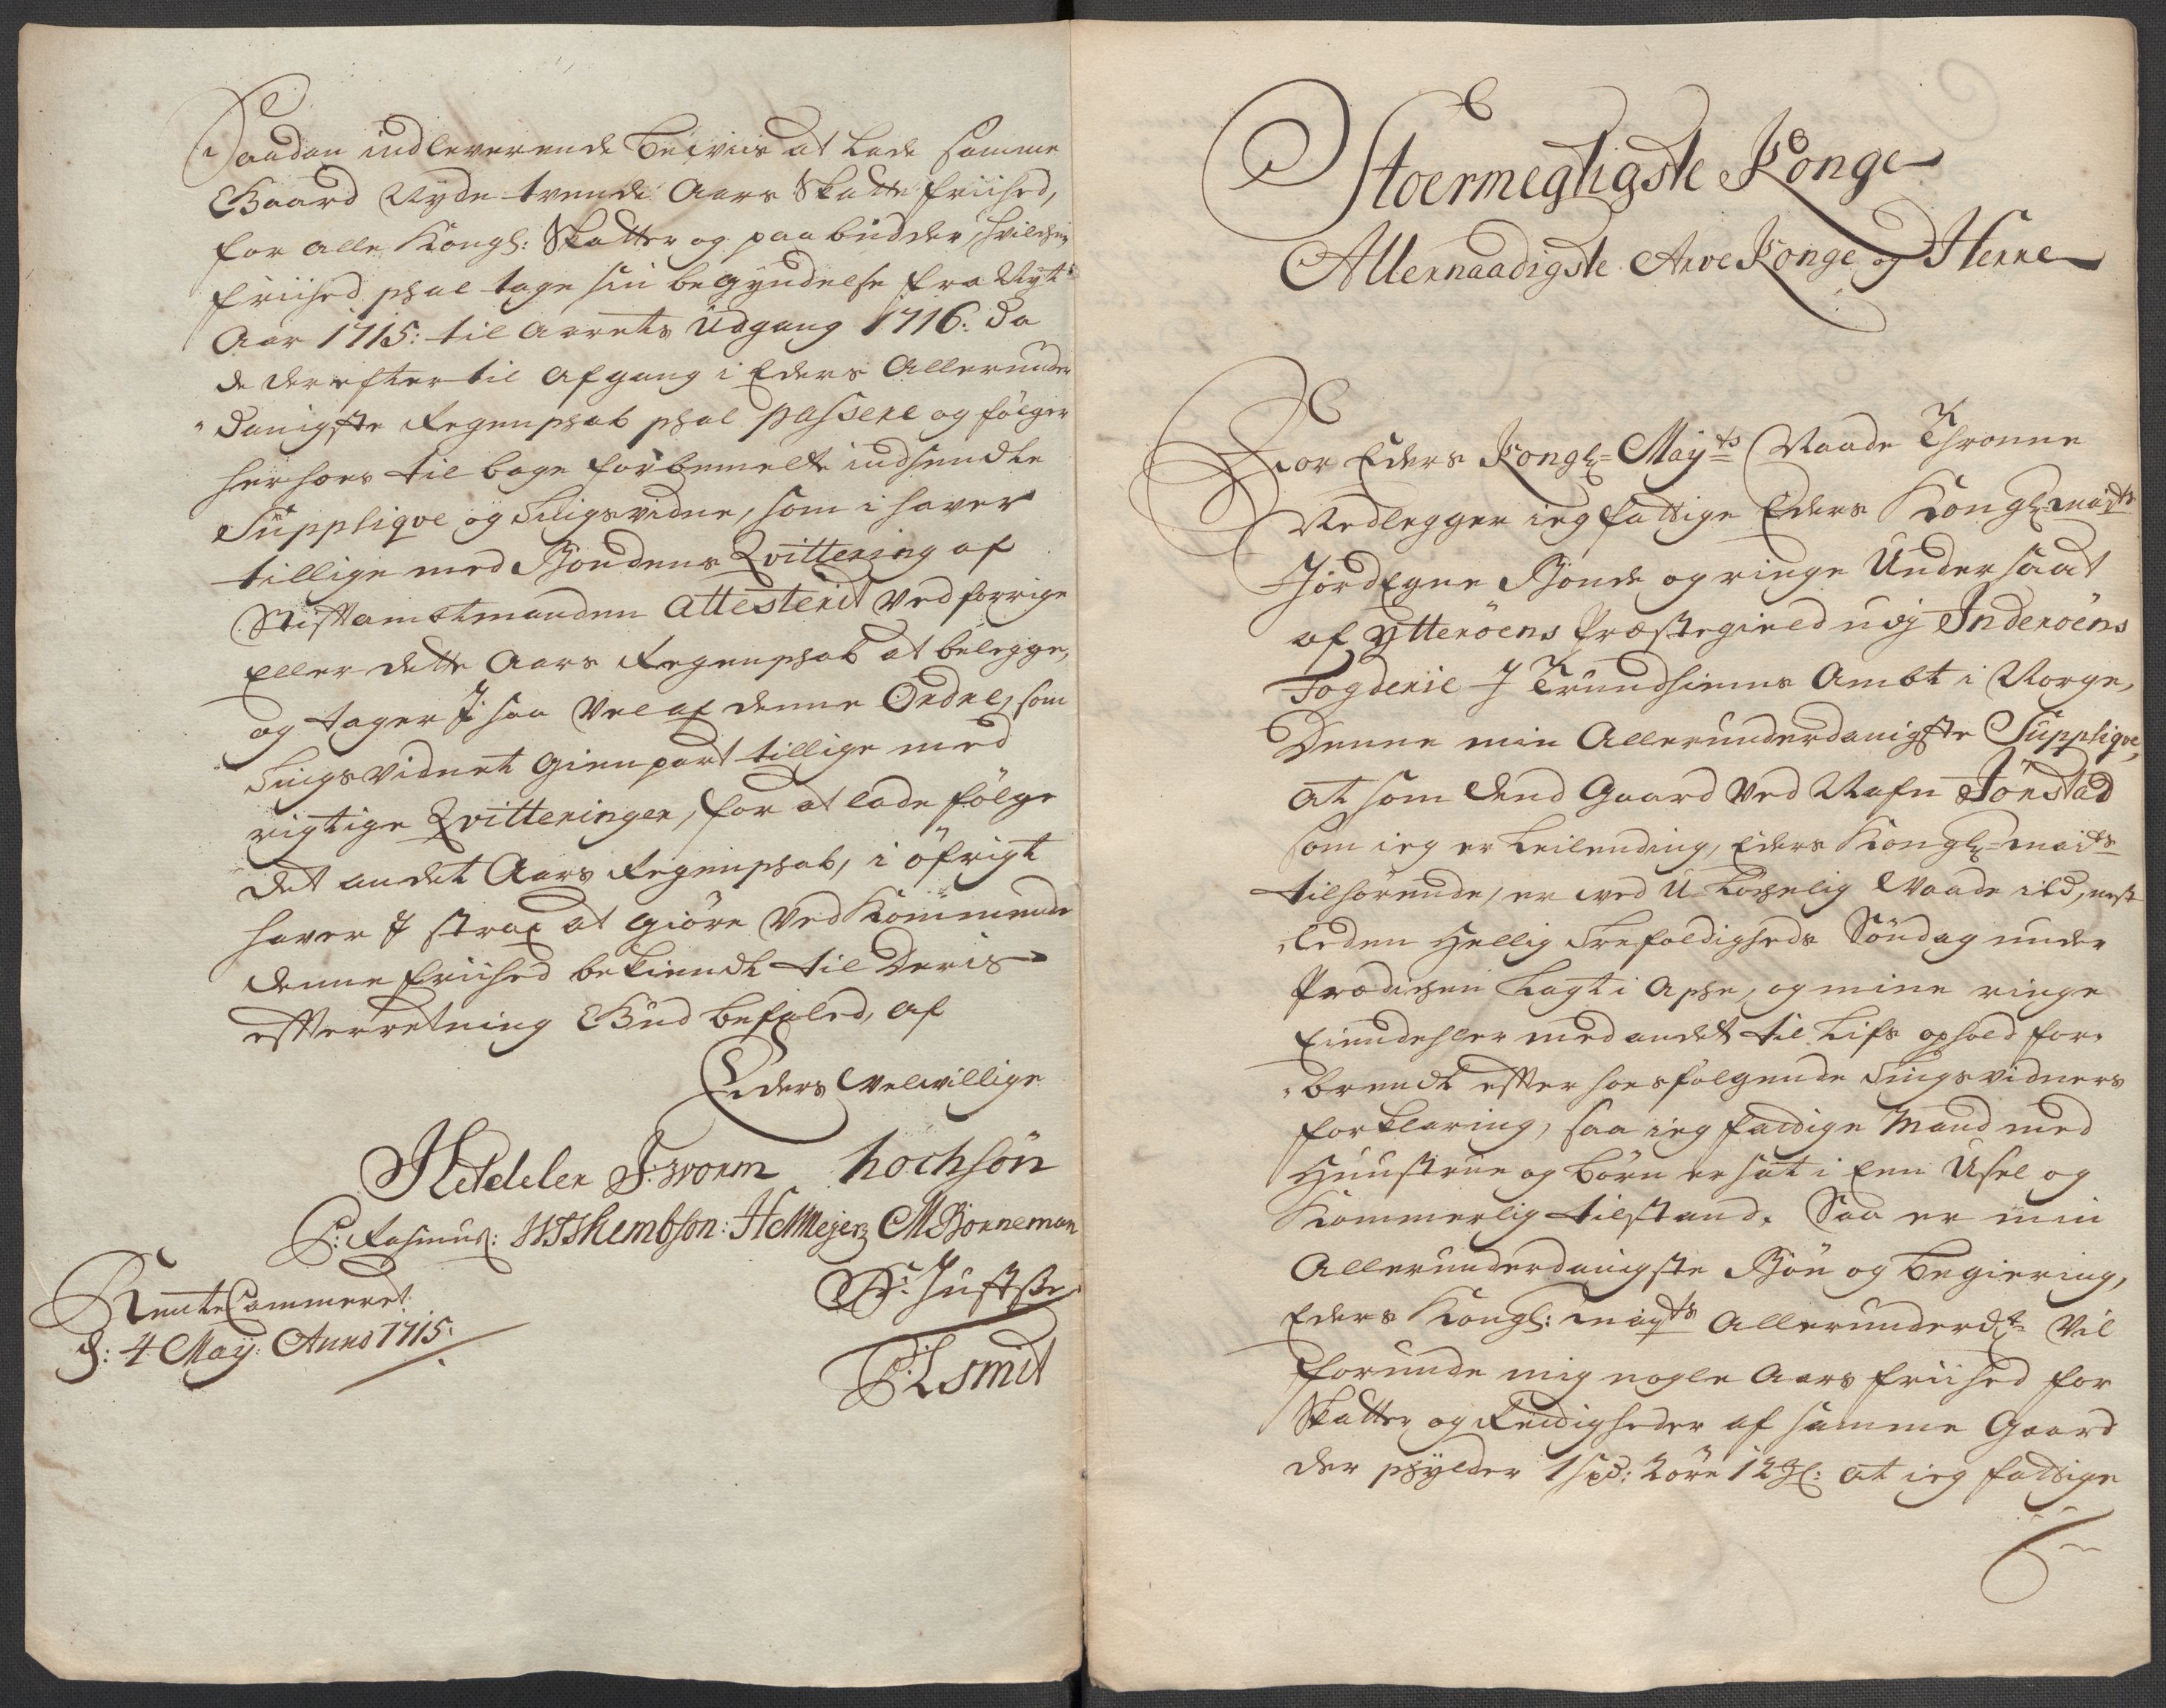 Saadan indleverende Beviis at lade samme
Gaard Nyde tvende Aars Skatte friihed,
for alle Kongl: Skatter og paabudder, hvilchen
friihed skal tage sin begyndelse fra Nyt-
Aar 1715: til Aarets Udgang 1716: da
de derefter til Afgang i Eders Allerunder
danigste Regenskab skal passere og følger
herhoes tilbage forbemelte indsendte
Supplique og Tingsvidne, som i haver
tillige med Bondens Qvittering af
Stiftamtmanden attesterit ved forrige
Eller dette Aars Regenskab at belegge,
og tager I saa vel af denne Ordre, som
Tingsvidnet Gienpart tillige med
rigtige Qvitteringer, for at lade følge
det andet Aars Regenskab, i öfrigt
haver I strax at giöre Vedkommende
denne friihed bekiendt til Deris
efterretning Gud befaled, af
Eders Velvillige
J. Worm hochsön
C: Rasmus: H Thembson: H Meyer M Borneman
Fr: Juststs
Rente Cammeret
d: 4 May: Anno 1715:
Smit
Stoermegtigste Konge
Allernaadigste Arve Konge og Herre
For Eders Kongl= Mayts Naade Throne
Nedlegger ieg fattige Eders Kongl= mayts
Jordegne Bonde og ringe Undersaat
af Ytteröens Præstegield udj Inderöens
Fogderie I Trundhiems Ambt i Norge,
Denne min Allerunderdanigste Supplique,
at som dend Gaard ved Nafn Jörstad
som ieg er Leilending, Eders Kongl= maits
tilhörende, er ved U Löchelig Vaade ild, nest
leden Hellig Trefoldigheds Söndag under
Prædichen Lagt i Aske, og mine ringe
Eiendehler med andet til Lifs ophold for-
brendt efter hoesfølgende Tingsvidners
forklaring, saa ieg fattige Mand med
Huustrue og börn er sat i Een Usel og
Kommerlig tilstand. Saa er min
Allerunderdanigste Bön og Begiering,
Eders Kongl: mayts Allerunderdt= Vil
forunde mig nogle Aars friihed for
Skatter og Retigheder af samme Gaard
der skylder 1 spd: 2 öre 12 at ieg fattige